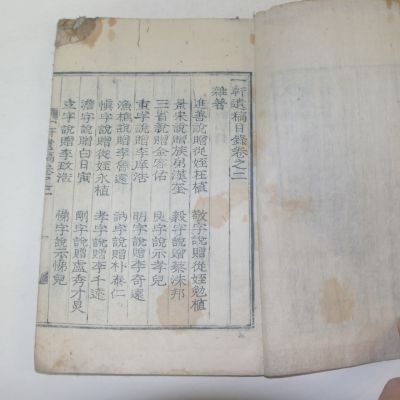 一軒遺稿目錄卷之二
雜著
進善說贈從姪柱植
敬字說贈從姪勉植
景宋說贈族弟漢奎
毅字說贈蔡洙邦
三省說贈金容佑
良字說示孝兒
重字說贈李厚浩
明字說贈李奇遠
漁樵說贈李晉遠
訥字說贈朴泰仁
愼字說贈從姪永植
孝字說贈李千遠
澹字說贈白日寅
剛字說贈盧秀才炅
立字說贈李玟浩
悌字說示悌兒